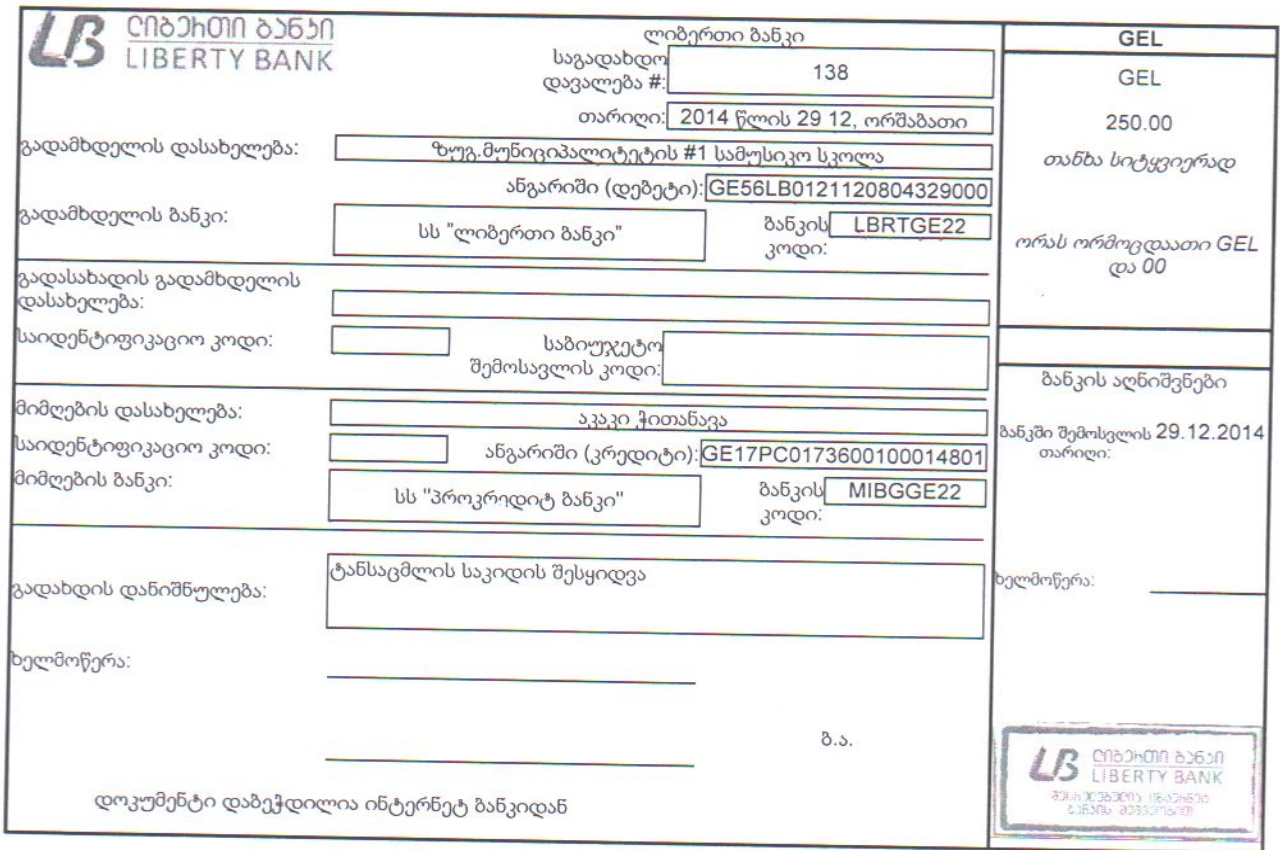 ლიბერთი ბანკი
LIBERTY BANK
ლიბერთი ბანკი
საგადახდო დავალება #: 138
თარიღი: 2014 წლის 29 12, ორშაბათი
გადამხდელის დასახელება: ზუგ.მუნიციპალიტეტის #1 სამუსიკო სკოლა
ანგარიში (დებეტი): GE56LB0121120804329000
გადამხდელის ბანკი: სს "ლიბერთი ბანკი" ბანკის კოდი: LBRTGE22
გადასახადის გადამხდელის
დასახელება:
საიდენტიფიკაციო კოდი: საბიუჯეტო
შემოსავლის კოდი:
მიმღების დასახელება: აკაკი ჭითანავა
საიდენტიფიკაციო კოდი: ანგარიში (კრედიტი): GE17PC0173600100014801
მიმღების ბანკი: სს "პროკრედიტ ბანკი" ბანკის კოდი: MIBGGE22
გადახდის დანიშნულება: ტანსაცმლის საკიდის შესყიდვა
ხელმოწერა:
ბ.ა.
დოკუმენტი დაბეჭდილია ინტერნეტ ბანკიდან
GEL
GEL
250.00
თანხა სიტყვიერად
ორას ორმოცდაათი GEL
და 00
ბანკის აღნიშვნები
ბანკში შემოსვლის 29.12.2014
თარიღი:
ხელმოწერა:
ლიბერთი ბანკი
LIBERTY BANK
შესრულებულია ინტერნეტ
ბანკის მეშვეობით